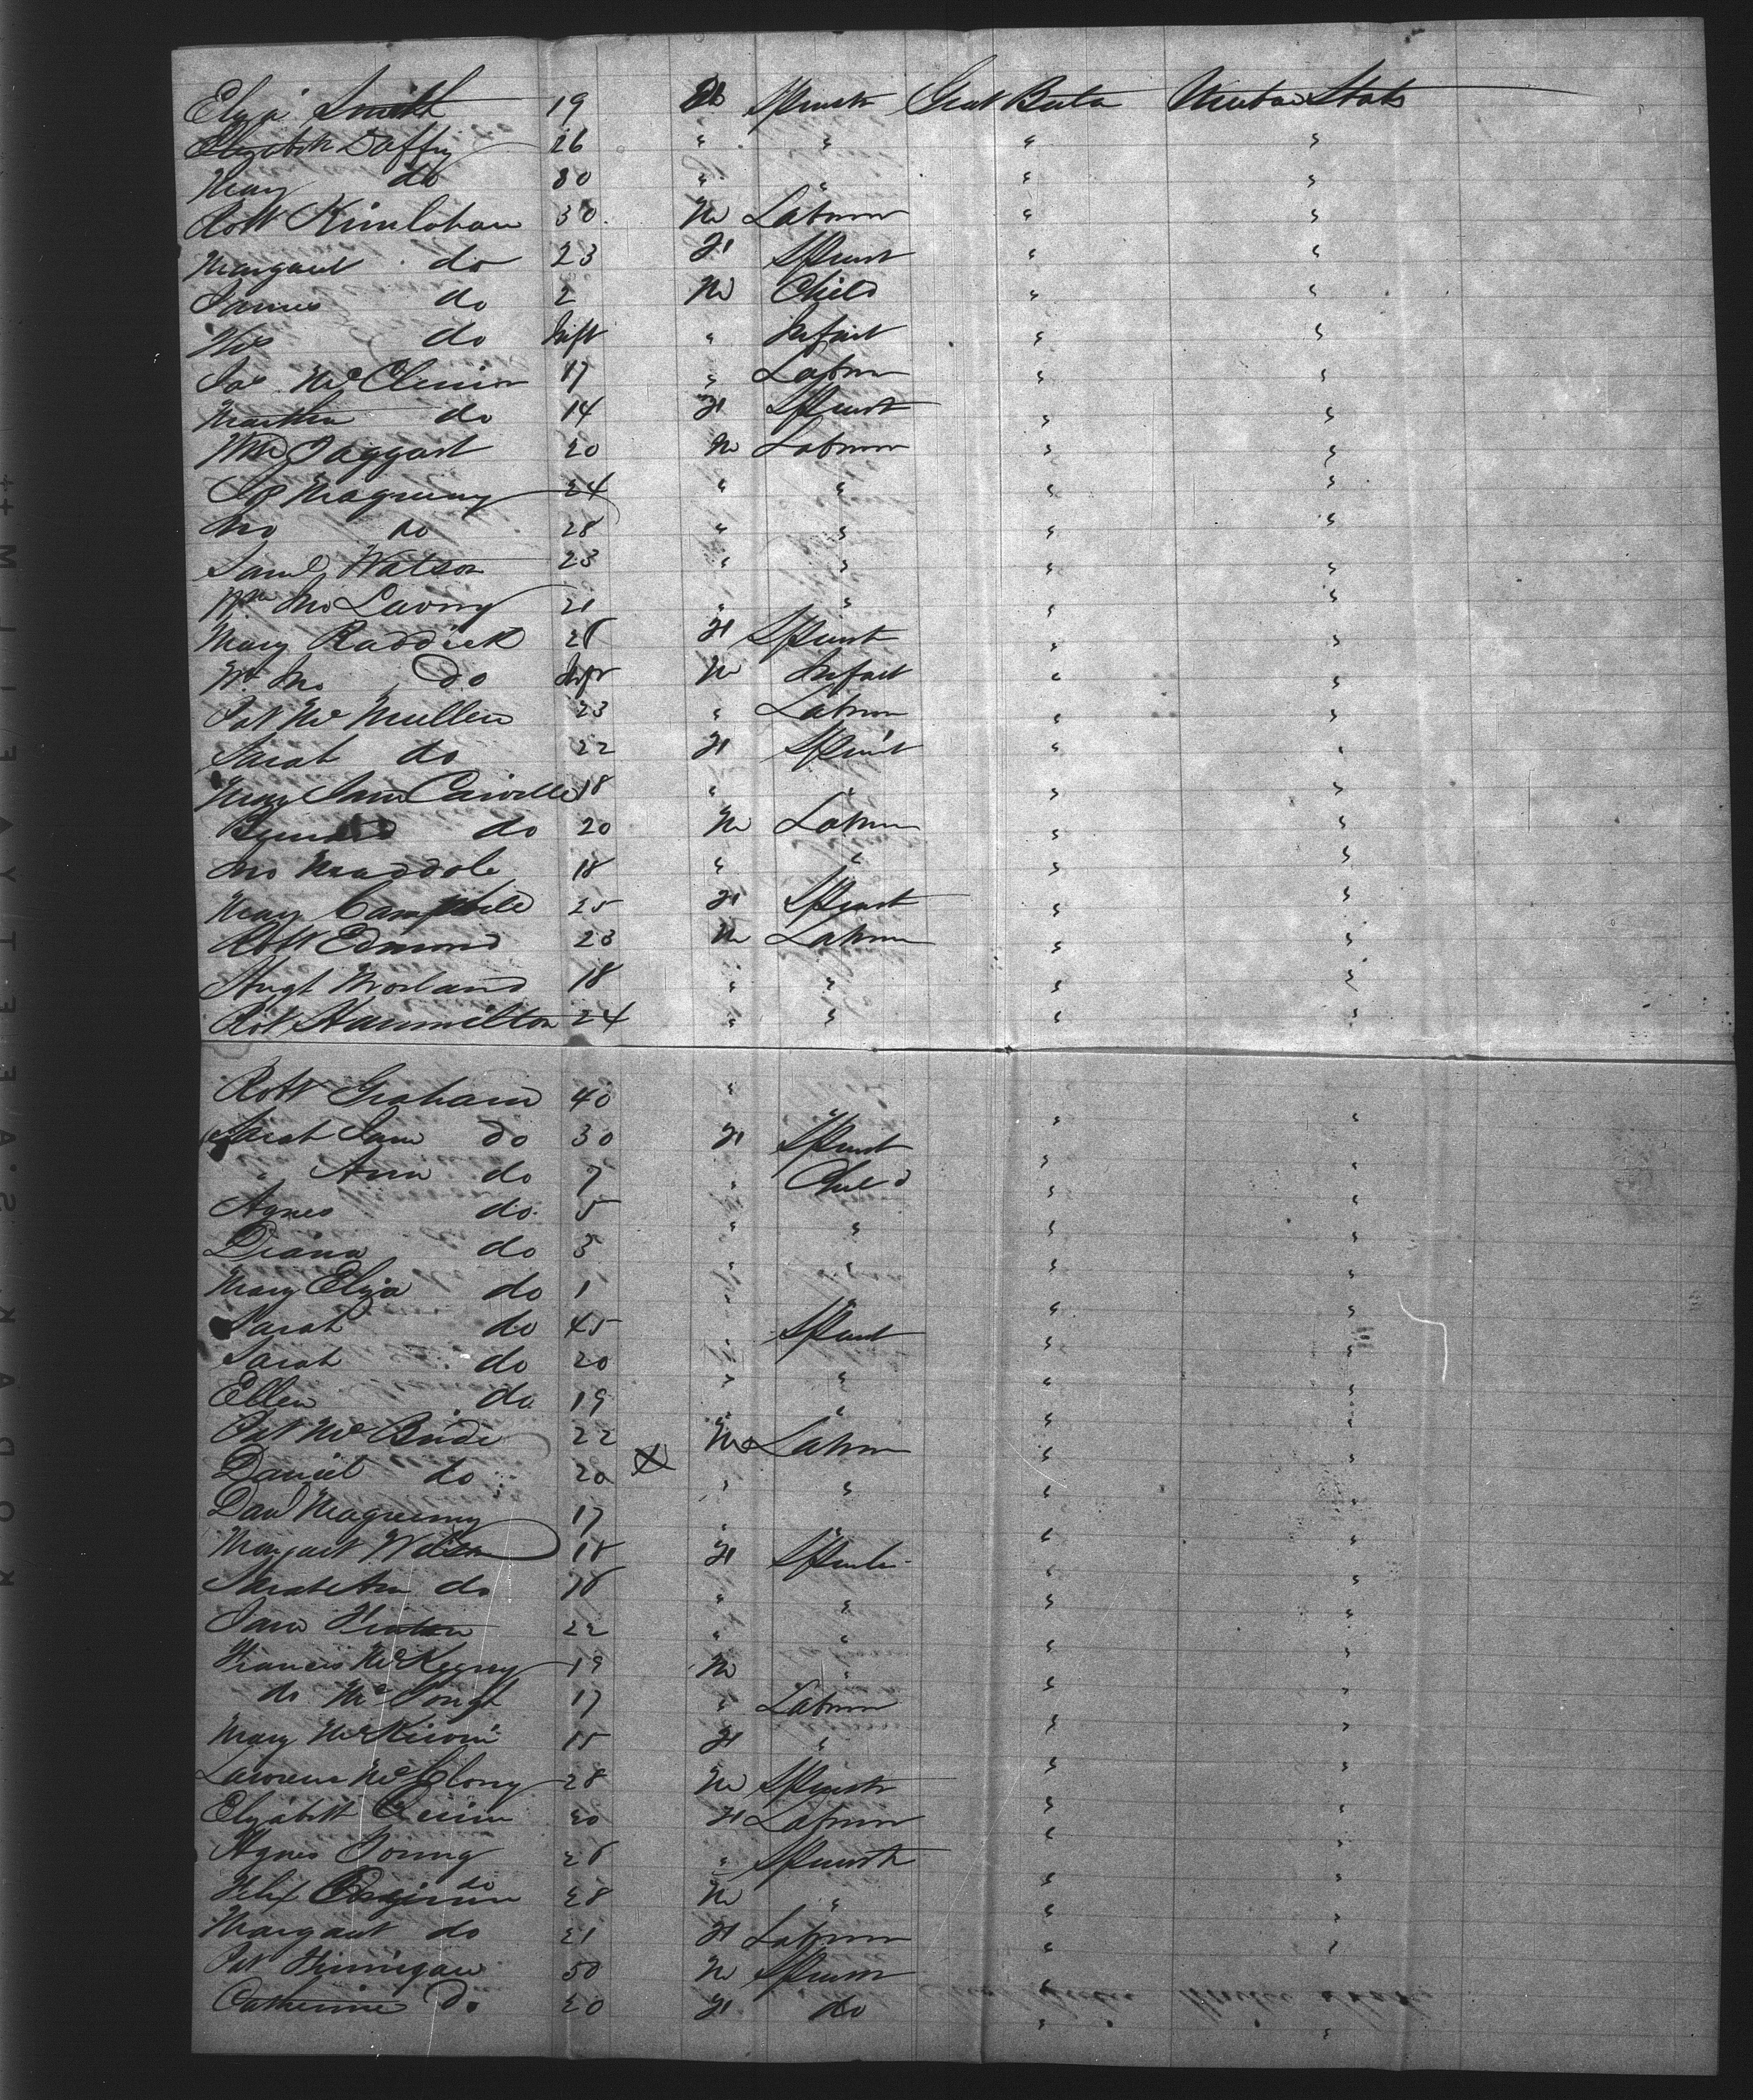 Eliza Smith 19 Spinstr Great Brita United Stats
Elizabeth Daffy 26 " " " "
Mary do 30 " " " "
Robt Kinlohan 30 M Labourer " "
Margaret do 23 F Spinst " "
James do 2 M Child " "
Wm do Inft " Infant " "
Jas McClinion 17 " Labour " "
Martha do 14 F Spinst " "
Wm Taggart 20 M Labourer " "
Jos Magrueny 24 " " " "
Jno do 28 " " " "
Saml Watson 23 " " " "
Wm McLavny 21 " " " "
Mary Raddick 28 F Spinst " "
Wm Jno do Inft M Infant " "
Pat McMullen 23 " Labour " "
Sarah do 22 F Spinst " "
Mary Jane Cairolle 18 " " " "
do 20 M Labour " "
Jno Maddole 18 " " " "
Mary Campbell 25 F Spinst " "
Robt Edmond 23 M Labour " "
Hugh Morland 18 " " " "
Robt Hammelton 24 " " " "
Robt Graham 40 " " " "
Sarah Jane do 30 F Spinst " "
" Ann do 7 " Child " "
Agnes do 5 " " " "
Diana do 3 " " " "
Mary Eliza do 1 " " " "
Sarah do 45 " Spinst " "
Sarah do 20 " " " "
Ellen do 19 " " " "
Pat McBride 22 M Labour " "
Daniel do 20 X " " " "
Danl Magruenny 17 " " " "
Margaret Wilson 18 F Spinstr " "
Sarah Ann do 18 " " " "
Jane 22 " " " "
Francis McKegney 19 M " " "
do Mc 17 " Labour " "
Mary 15 F " " "
Lawrence McClory 28 M Spinstr " "
Elizabeth Quinn 20 F Labour " "
Agnes Young 28 " Spinstr " "
Felix do 28 M " " "
Margaret do 21 F Labour " "
Pat Finnigan 50 M Spinstr " "
Catherine Do 20 F do " "